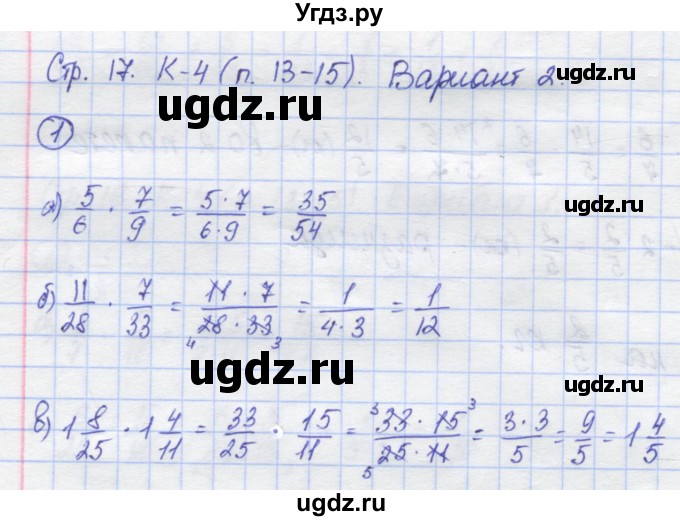 Угдз.ру
Стр. 17. К-4 (п. 13-15). Вариант 2.
ugdz.ru
ugdz.ru
1
ugdz.ru
а) 5/6 · 7/9 = 5·7/6·9 = 35/54
ugdz.ru
ugdz.ru
б) 11/28 · 7/33 = 11 · 7/28 · 33 = 1/4·3 = 1/12
4 3
ugdz.ru
ugdz.ru
в) 1 8/25 · 1 4/11 = 33/25 · 15/11 = 3 33 · 15 3/5 25 · 11 = 3·3/5 = 9/5 = 1 4/5
ugdz.ru
ugdz.ru